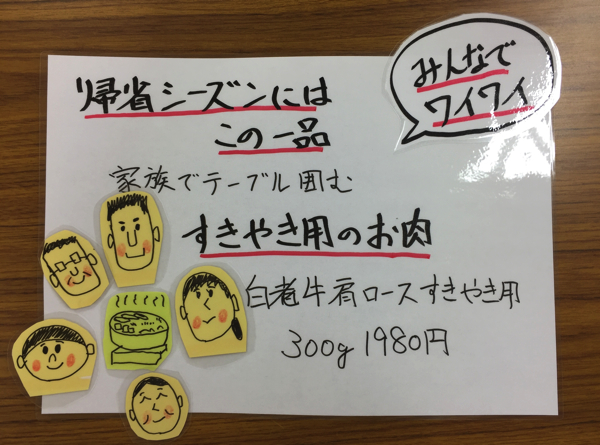 帰省シーズンには
この一品
みんなで
ワイワイ
家族でテーブル囲む
すきやき用のお肉
白老牛肩ロースすきやき用
300g 1980円